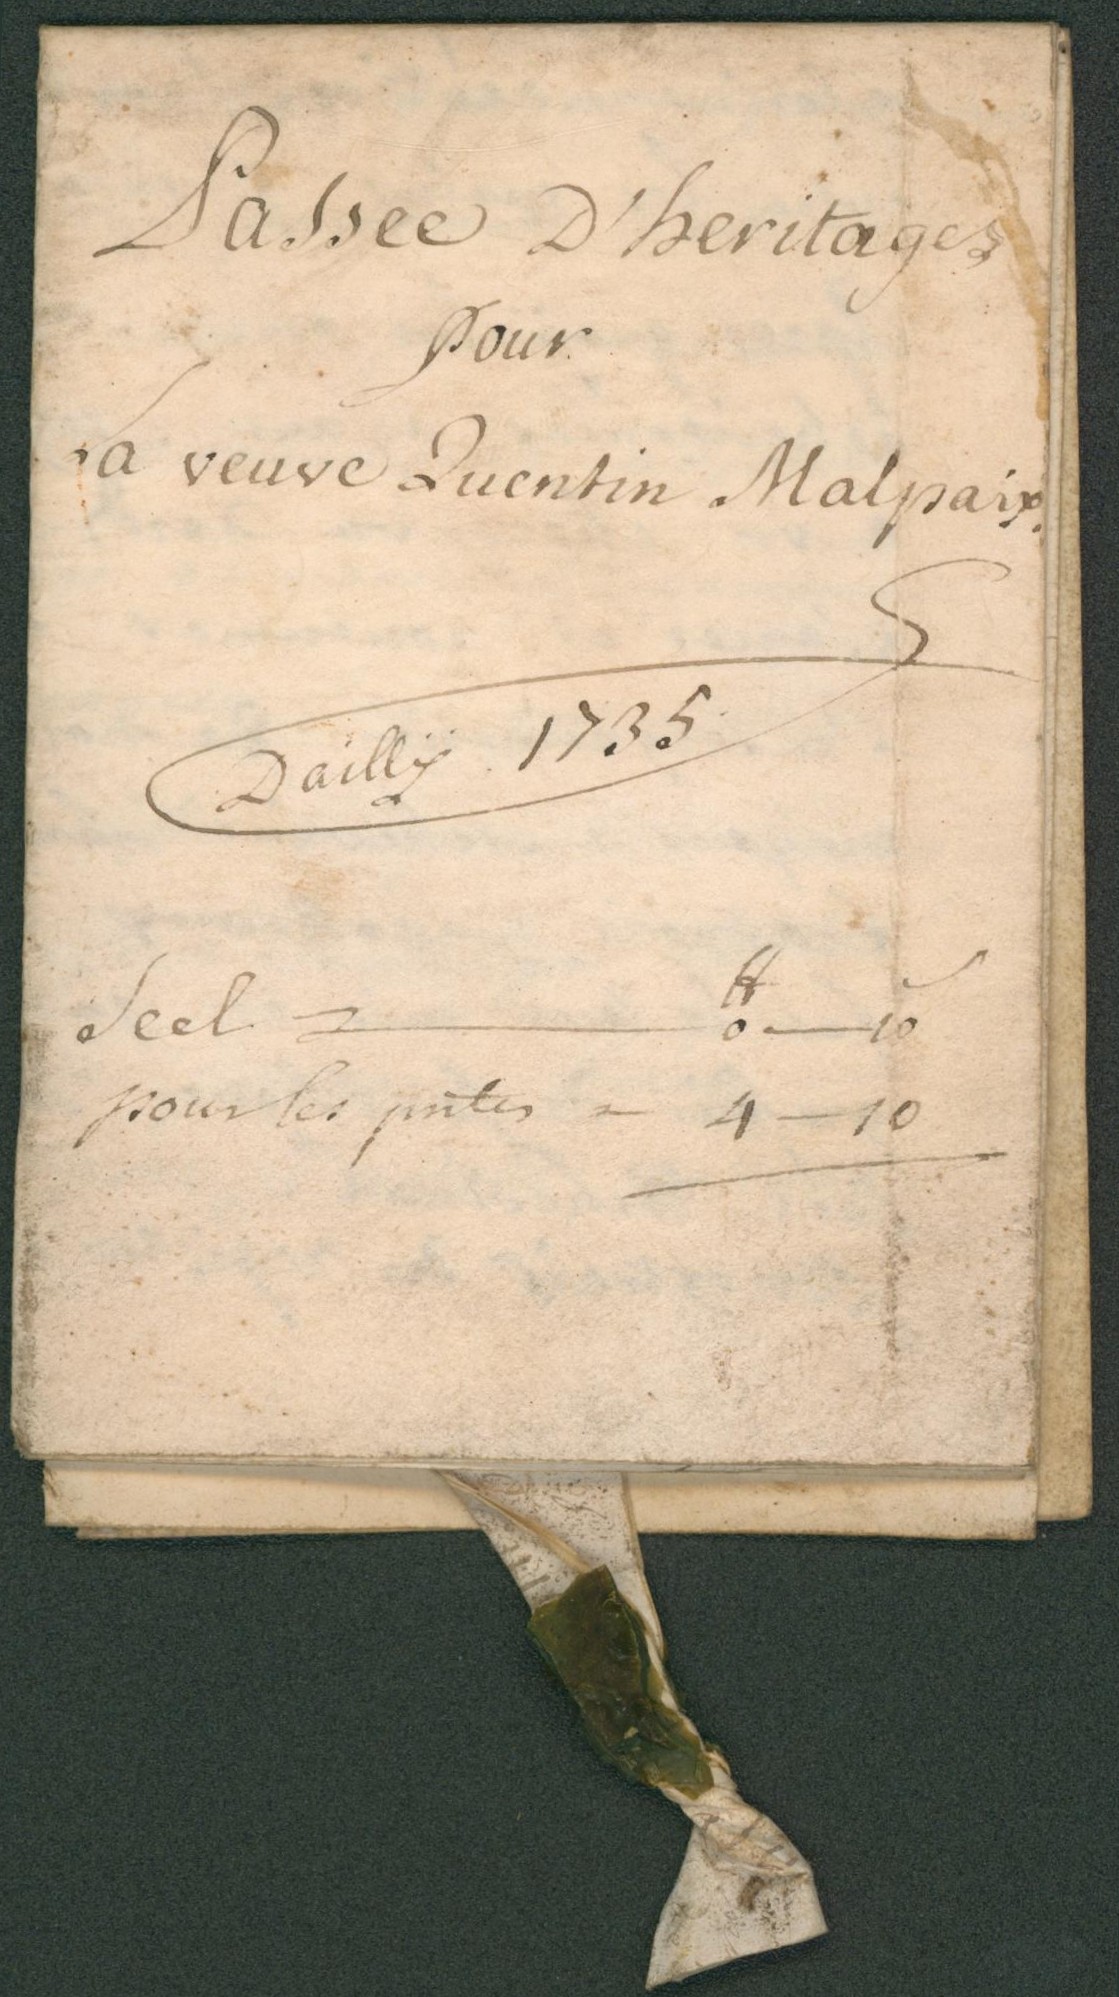 Passée D'heritages
pour
La veuve Quentin Malpaix.
Daillÿ 1735
Seel 0 — 10
pour les pntes 4 — 10